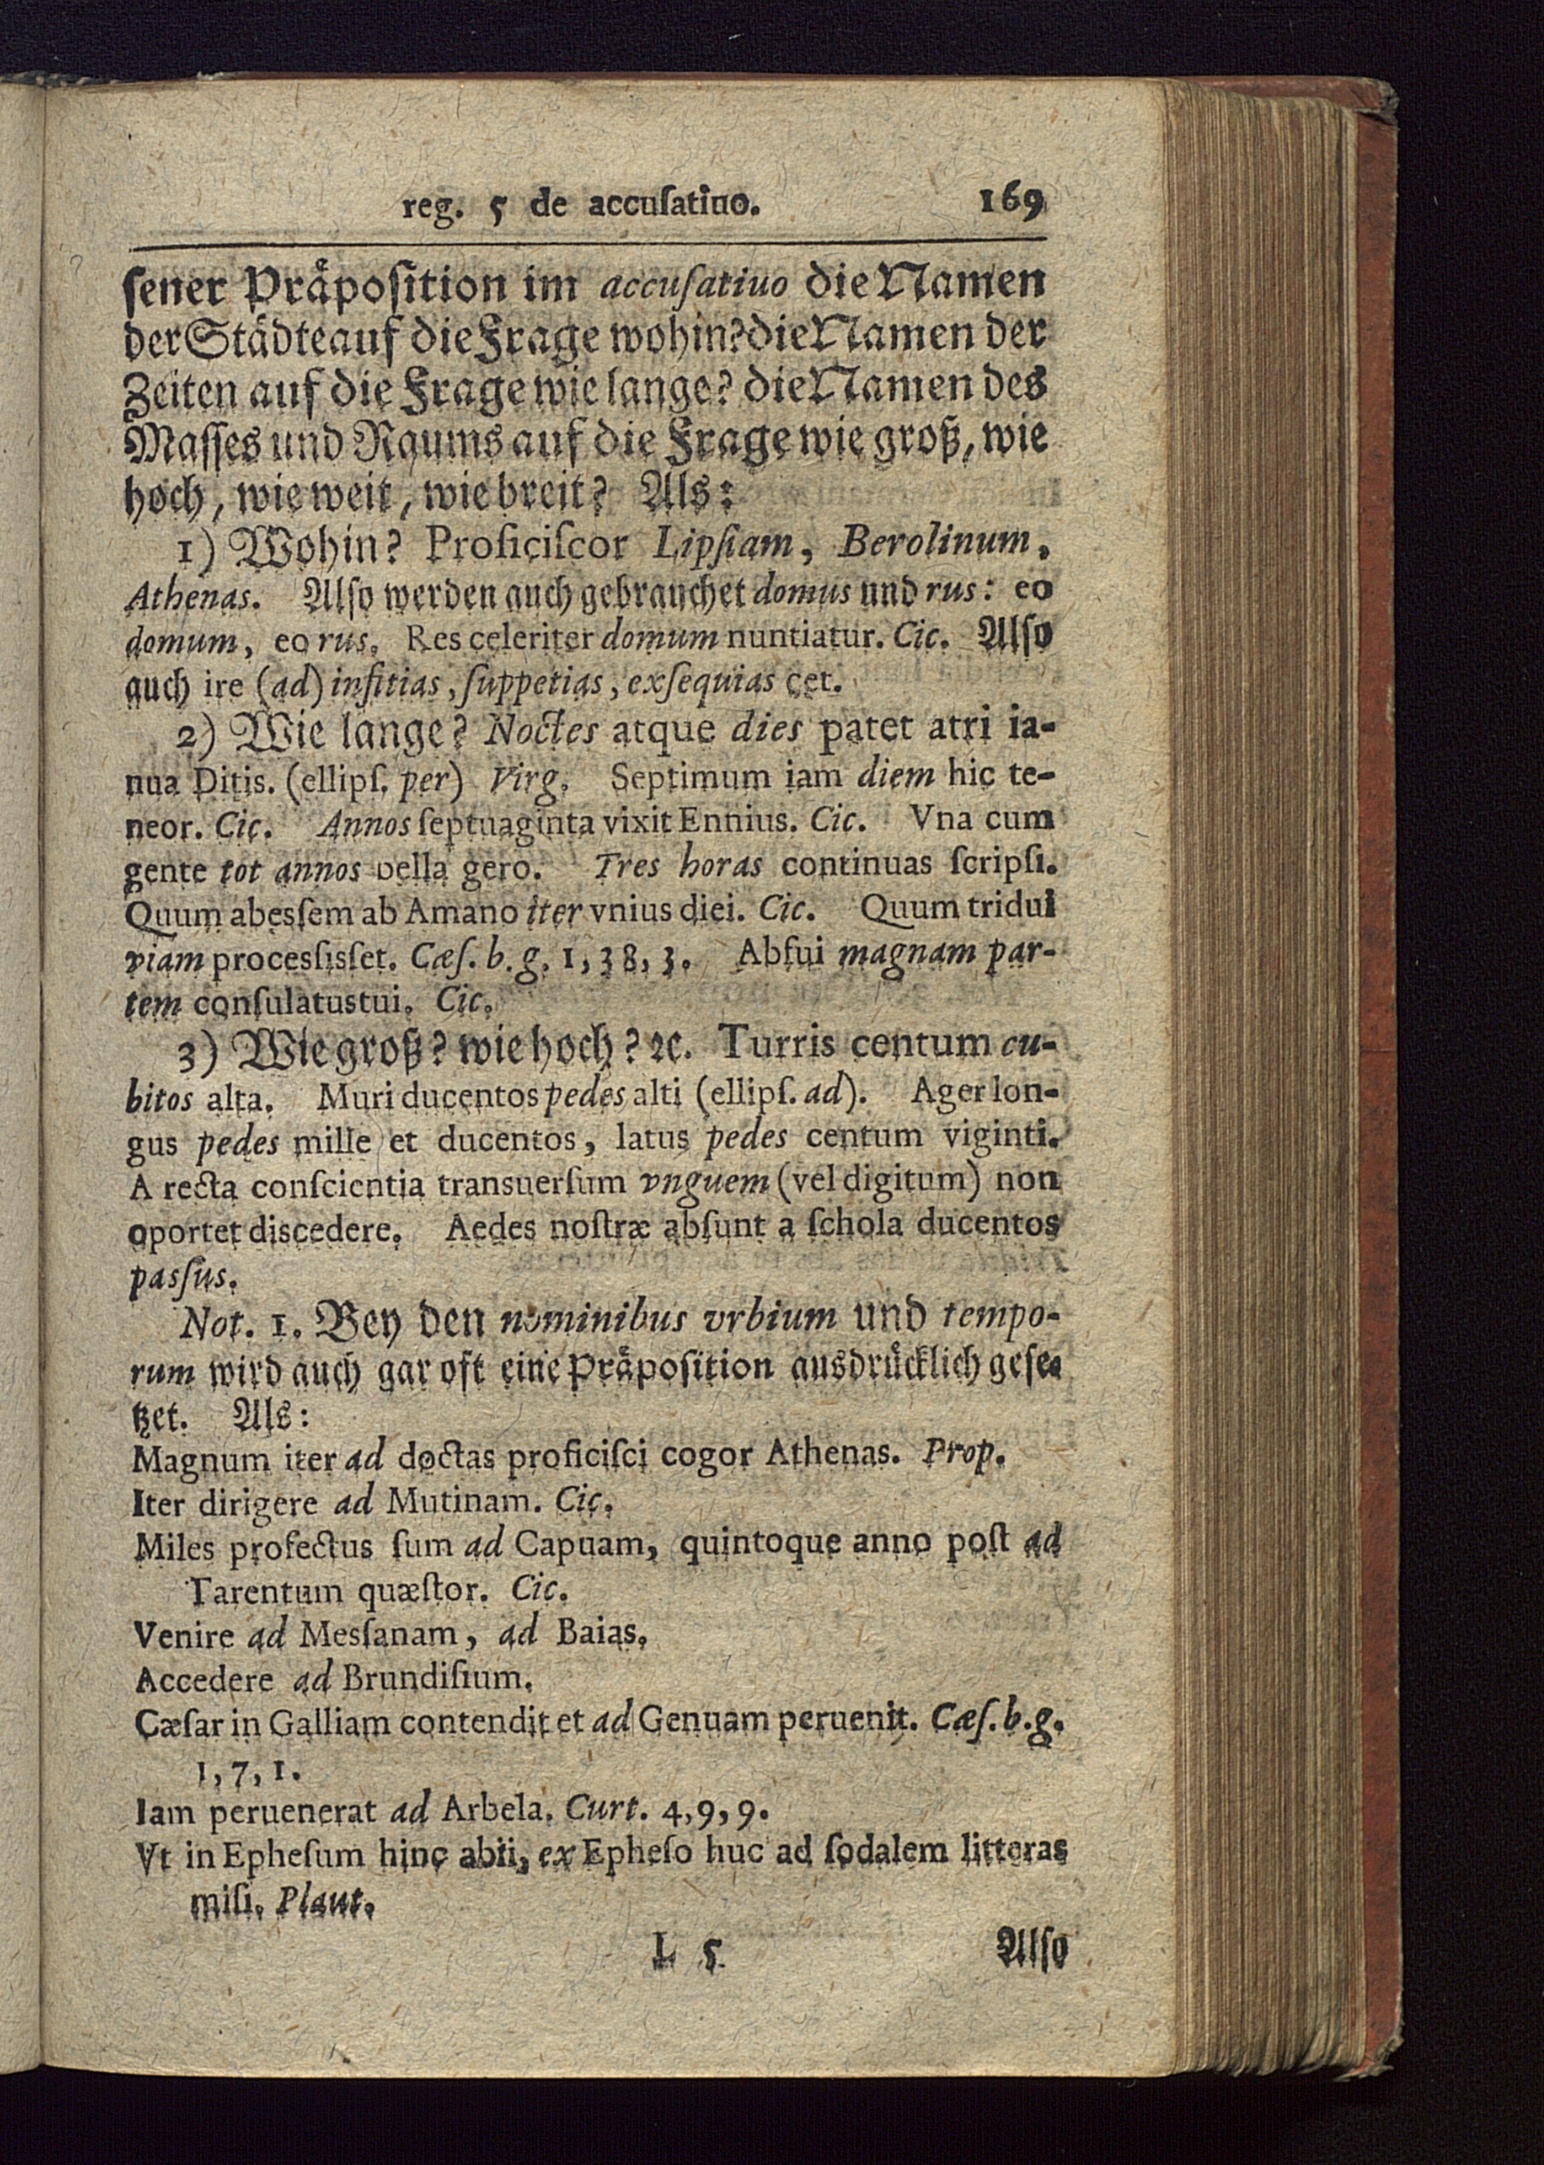 reg. 5 de accuſatiuo. 169
ſener Praͤpoſition im accuſatiuo die Namen
der Staͤdte auf die Frage wohin? die Namen der
Zeiten auf die Frage wie lange? die Namen des
Maſſes und Raums auf die Frage wie groß, wie
hoch, wie weit, wie breit? Als:
1) Wohin? Proficiſcor Lipſiam, Berolinum,
Athenas. Alſo werden auch gebrauchet domus und rus: eo
domum, eo rus. Res celeriter domum nuntiatur. Cic. Alſo
auch ire (ad) inſitias, ſuppetias, exſequias cet.
2) Wie lange? Noctes atque dies patet atri ia-
nua Ditis. (ellipſ. per) Virg. Septimum iam diem hic te-
neor. Cic. Annos ſeptuaginta vixit Ennius. Cic. Vna cum
gente tot annos bella gero. Tres horas continuas ſcripſi.
Quum abesſem ab Amano iter vnius diei. Cic. Quum tridui
viam procesſisſet. Cæſ. b. g. 1, 38, 3. Abfui magnam par-
tem conſulatus tui. Cic.
3) Wie groß? wie hoch? ꝛc. Turris centum cu-
bitos alta. Muri ducentos pedes alti (ellipſ. ad). Ager lon-
gus pedes mille et ducentos, latus pedes centum viginti.
A recta conſcientia transuerſum vnguem (vel digitum) non
oportet discedere. Aedes noſtræ abſunt a ſchola ducentos
pasſus.
Not. 1. Bey den nominibus vrbium und tempo-
rum wird auch gar oft eine Praͤpoſition ausdruͤcklich geſe-
tzet. Als:
Magnum iter ad doctas proficiſci cogor Athenas. Prop.
Iter dirigere ad Mutinam. Cic.
Miles profectus ſum ad Capuam, quintoque anno poſt ad
Tarentum quæſtor. Cic.
Venire ad Mesſanam, ad Baias.
Accedere ad Brundiſium.
Cæſar in Galliam contendit et ad Genuam peruenit. Cæſ. b. g.
1, 7, 1.
Iam peruenerat ad Arbela. Curt. 4, 9, 9.
Vt in Epheſum hinc abii, ex Epheſo huc ad ſodalem litteras
miſi. Plaut.
L 5 Alſo